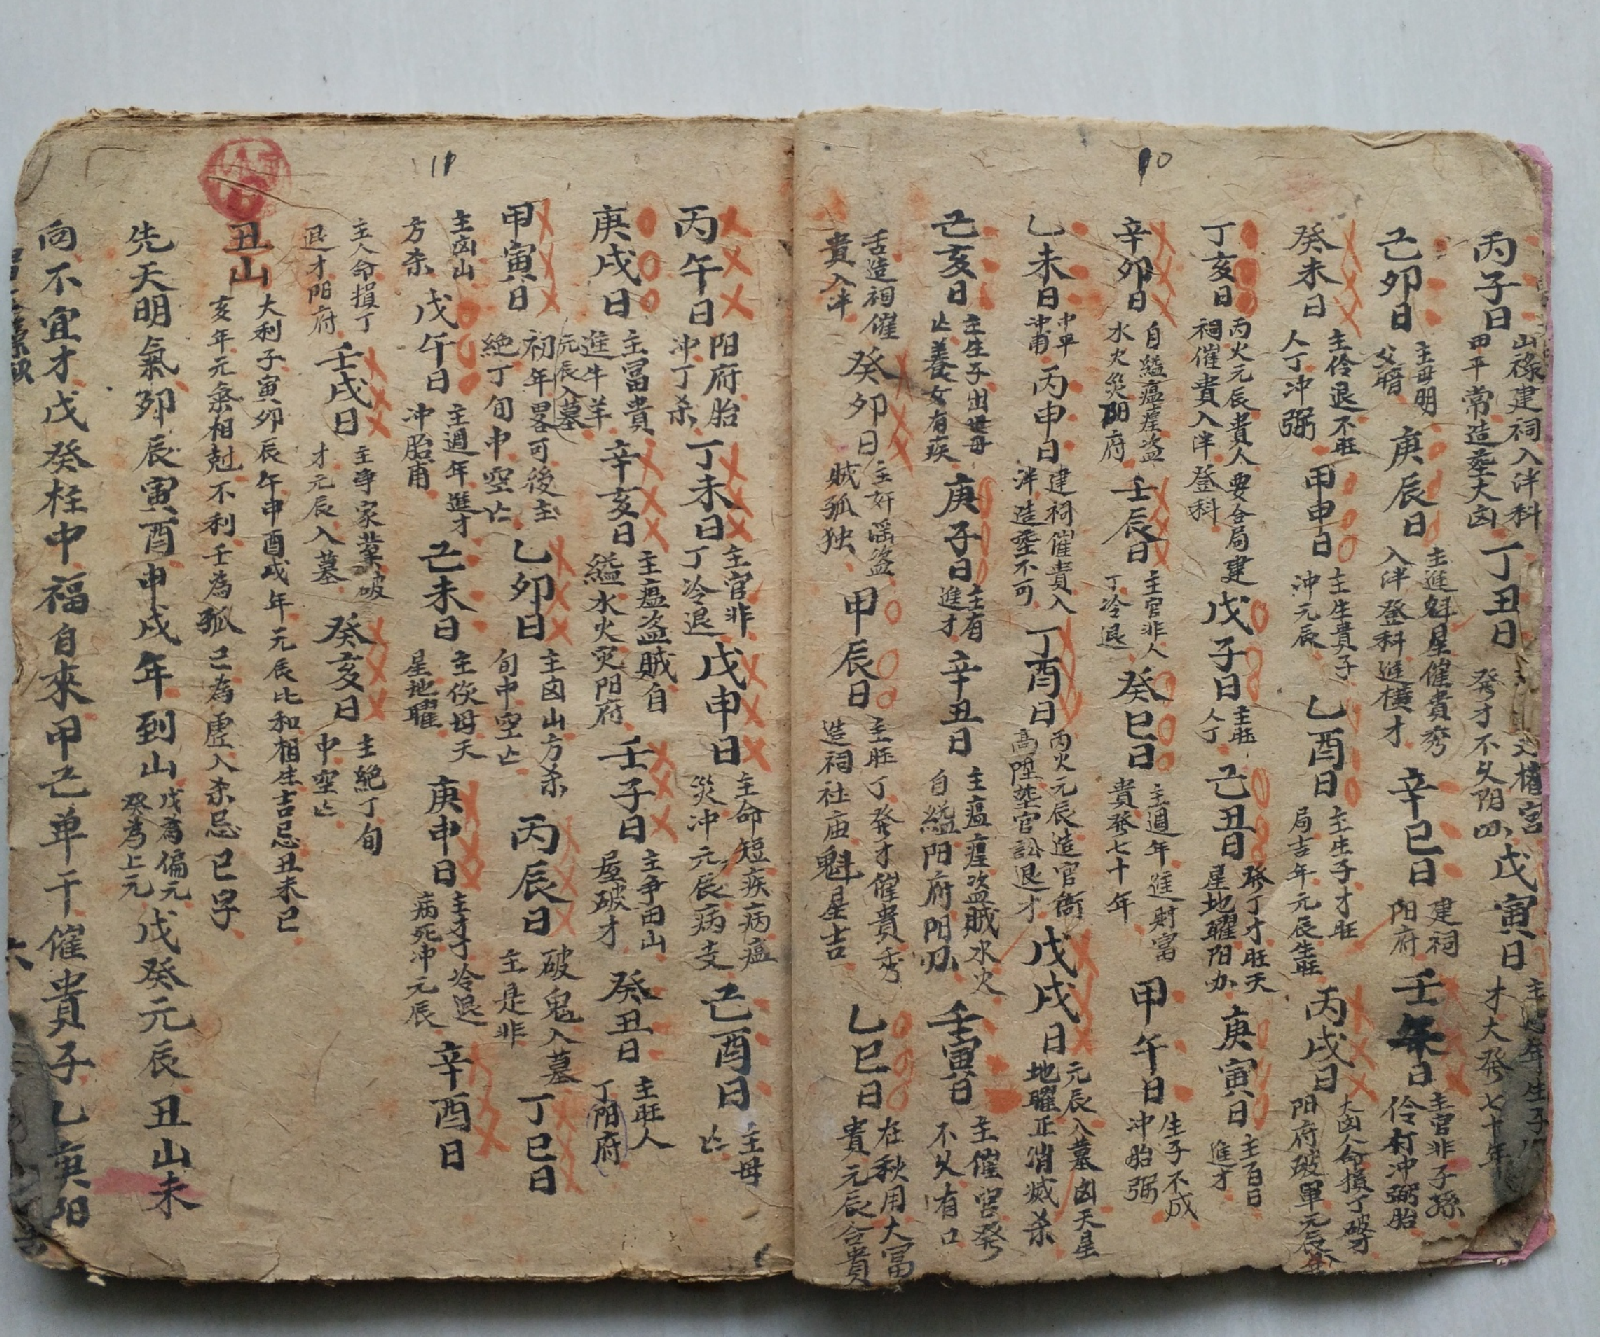 10
丙子日 山祿建祠入泮科 田平常造葬大凶 丁丑日 發才不久阳 戊寅日 才大發七十年
己卯日 主母明 父暗 庚辰日 主進魁星催貴秀 入泮登科進横才 辛巳日 建祠 阳府 壬午日 主官非子孫 伶朾冲弼胎
癸未日 主伶退不旺 人丁冲弼 甲申日 主生貴子 冲元辰 乙酉日 主生子才旺 局吉年元辰生旺 丙戌日 大凶人命損丁破才 阳府破單元辰
丁亥日 丙火元辰貴人要合局建 祠催貴入泮登科 戊子日 主旺 人丁 己丑日 發丁才旺天 星地曜阳 庚寅日 主百日 進才
辛卯日 自縊瘟瘟盗 水火災阳府 壬辰日 主官非人 丁冷退 癸巳日 主週年進財富 貴發七十年 甲午日 生子不成 冲胎弼
乙未日 中平 冲甫 丙申日 建祠催貴入 泮造葬不可 丁酉日 丙火元辰造官衙 高陞墜官訟退才 戊戌日 元辰入墓凶天星 地曜正消滅杀
己亥日 主生子出 止養女有疾 庚子日 主有 進才 辛丑日 主瘟瘟盗賊水火 自縊阳府阳 壬寅日 主催官發 不久有口
舌造祠催 貴入泮 癸卯日 主奸淫盗 賊孤独 甲辰日 主旺丁發才催貴秀 造祠社庙魁星吉 乙巳日 在秋用大富 貴元辰合貴
11
丙午日 阳府胎 冲丁杀 丁未日 主官非 丁冷退 戊申日 主命短疾病瘟 災冲元辰病支 己酉日 主母 亡
庚戌日 主富貴 進牛羊 元辰入墓 辛亥日 主瘟盗賊自 縊水火災阳府 壬子日 主争田山 屋破才 癸丑日 主旺人 丁阳府
甲寅日 初年畧可後主 絶丁旬中空亡 乙卯日 主凶山方杀 旬中空亡 丙辰日 破鬼入墓 主是非 丁巳日
主凶山 方杀 戊午日 主週年進才 冲胎甫 己未日 主後母天 星地曜 庚申日 主才冷退 病死冲元辰 辛酉日
主人命損丁 退才阳府 壬戌日 主争家業破 才元辰入墓 癸亥日 主絶丁旬 中空亡
丑山 大利子寅卯辰午申酉戌年元辰比和相生吉忌丑未巳 亥年元乘相尅不利壬為孤己為虚入杀忌巳字
先天明氣卯辰寅酉申戌年到山 戊為偏元 癸為上元 戊癸元辰丑山未
向不宜才戊癸柱中福自來甲己单干催貴子乙庚阳